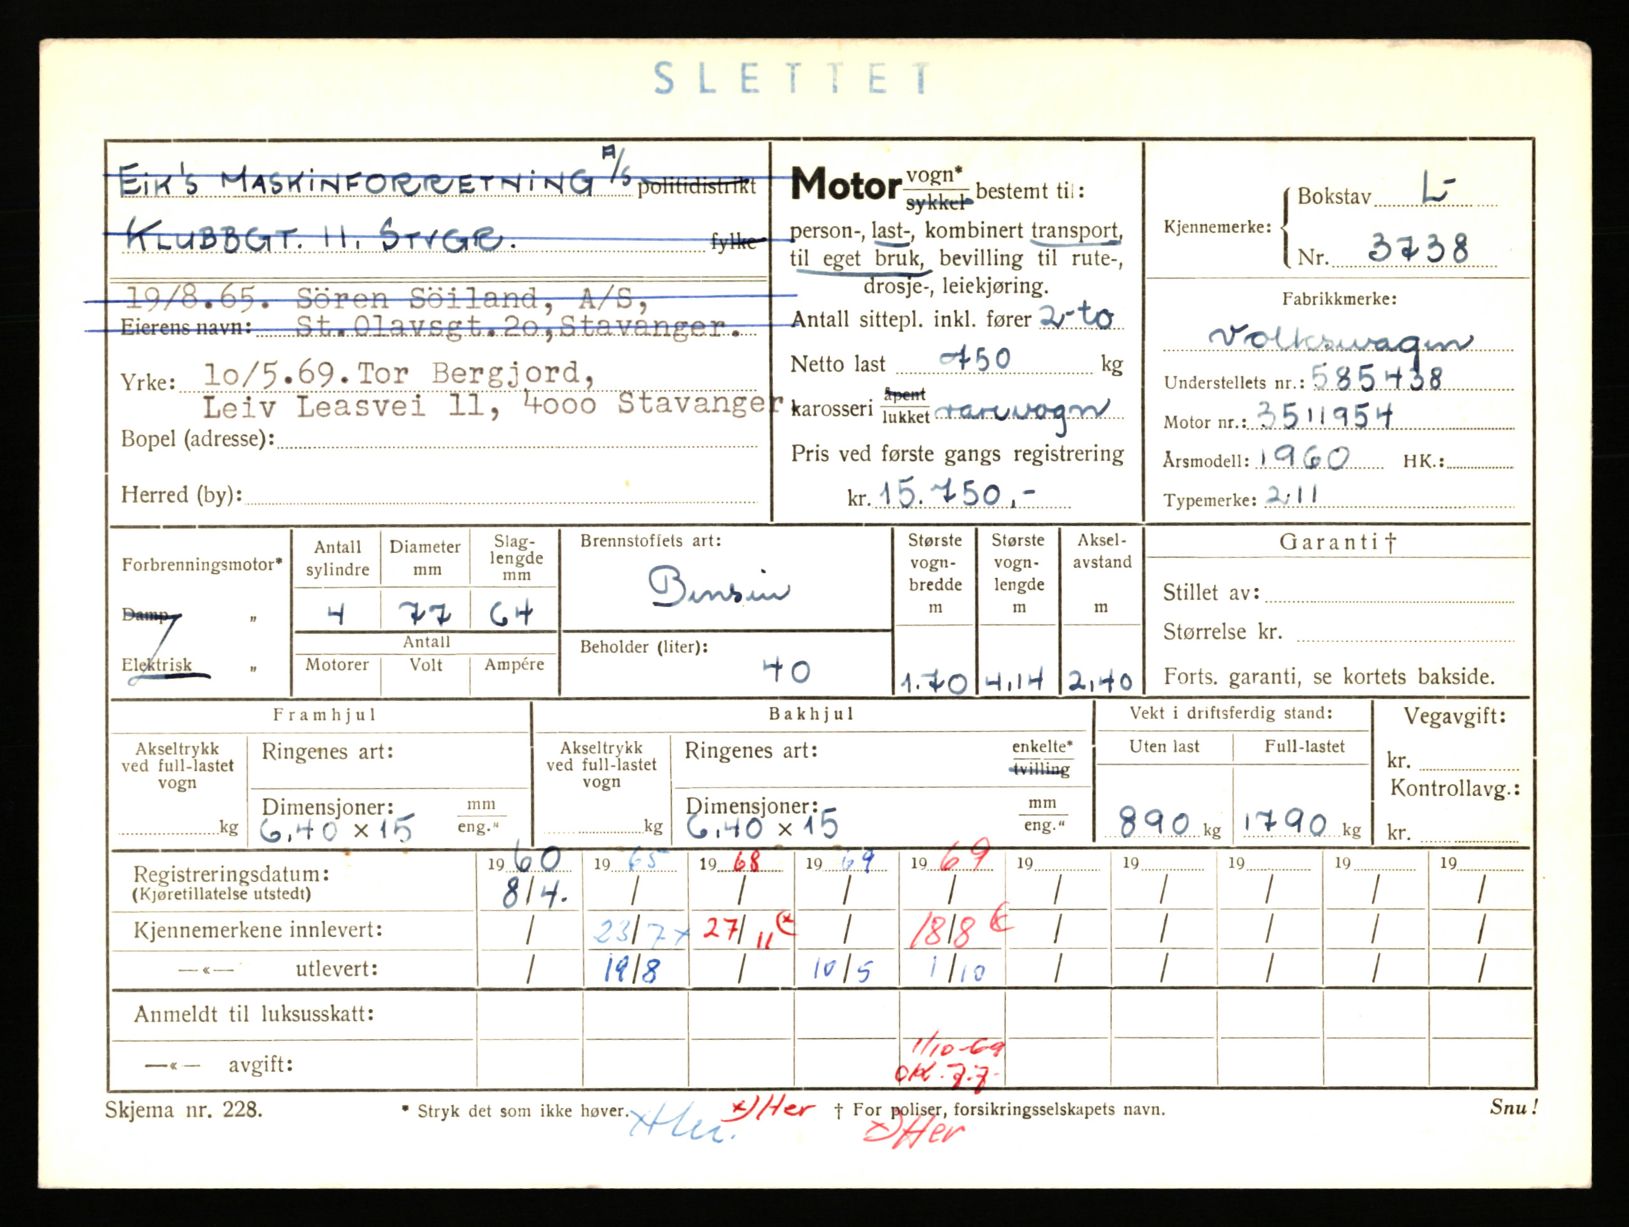 SLETTET
EIK'S MASKINFORRETNING A/S politidistrikt
KLUBBGT. 11. STVGR. fylke
19/8.65. Sören Söiland, A/S,
Eierens navn: St.Olavsgt.20,Stavanger.
Yrke: 10/5.69.Tor Bergjord,
Leiv Leasvei 11, 4000 Stavanger
Bopel (adresse):
Herred (by):
Motor vogn* sykkel bestemt til:
person-, last-, kombinert transport,
til eget bruk, bevilling til rute-,
drosje-, leiekjøring.
Antall sittepl. inkl. fører 2-to
Netto last 750 kg
karosseri åpent lukket varevogn
Pris ved første gangs registrering
kr. 15.750,-
Kjennemerke: Bokstav L-
Nr. 3738
Fabrikkmerke:
Volkswagen
Understellets nr.: 585438
Motor nr.: 3511954
Årsmodell: 1960 HK.:
Typemerke: 211
Forbrenningsmotor*
Damp "
Elektrisk "
Antall sylindre Diameter mm Slag-lengde mm
4 77 64
Antall
Motorer Volt Ampére
Brennstoffets art:
Bensin
Beholder (liter):
40
Største vogn-bredde m Største vogn-lengde m Aksel-avstand m
1.70 4,14 2,40
Garanti †
Stillet av:
Størrelse kr.
Forts. garanti, se kortets bakside.
Framhjul
Akseltrykk ved full-lastet vogn
kg
Ringenes art:
Dimensjoner: mm
6,40 x 15 eng."
Bakhjul
Akseltrykk ved full-lastet vogn
kg
Ringenes art: enkelte* tvilling
Dimensjoner: mm
6,40 x 15 eng."
Vekt i driftsferdig stand:
Uten last Full-lastet
890 kg 1790 kg
Vegavgift:
kr.
Kontrollavg.:
kr.
Registreringsdatum: 1960 1965 1968 1969 1969 19 19 19 19 19
(Kjøretillatelse utstedt) 8/4. / / / / / / / / /
Kjennemerkene innlevert: / 23/7 x 27/11 (x / 18/8 (x / / / / /
—«— utlevert: / 19/8 / 10/5 1/10 / / / / /
Anmeldt til luksusskatt:
—«— avgift: 1/10-69
OK. J.J.
Skjema nr. 228. * Stryk det som ikke høver. x) Her † For poliser, forsikringsselskapets navn. Snu!
x Her. x) Her